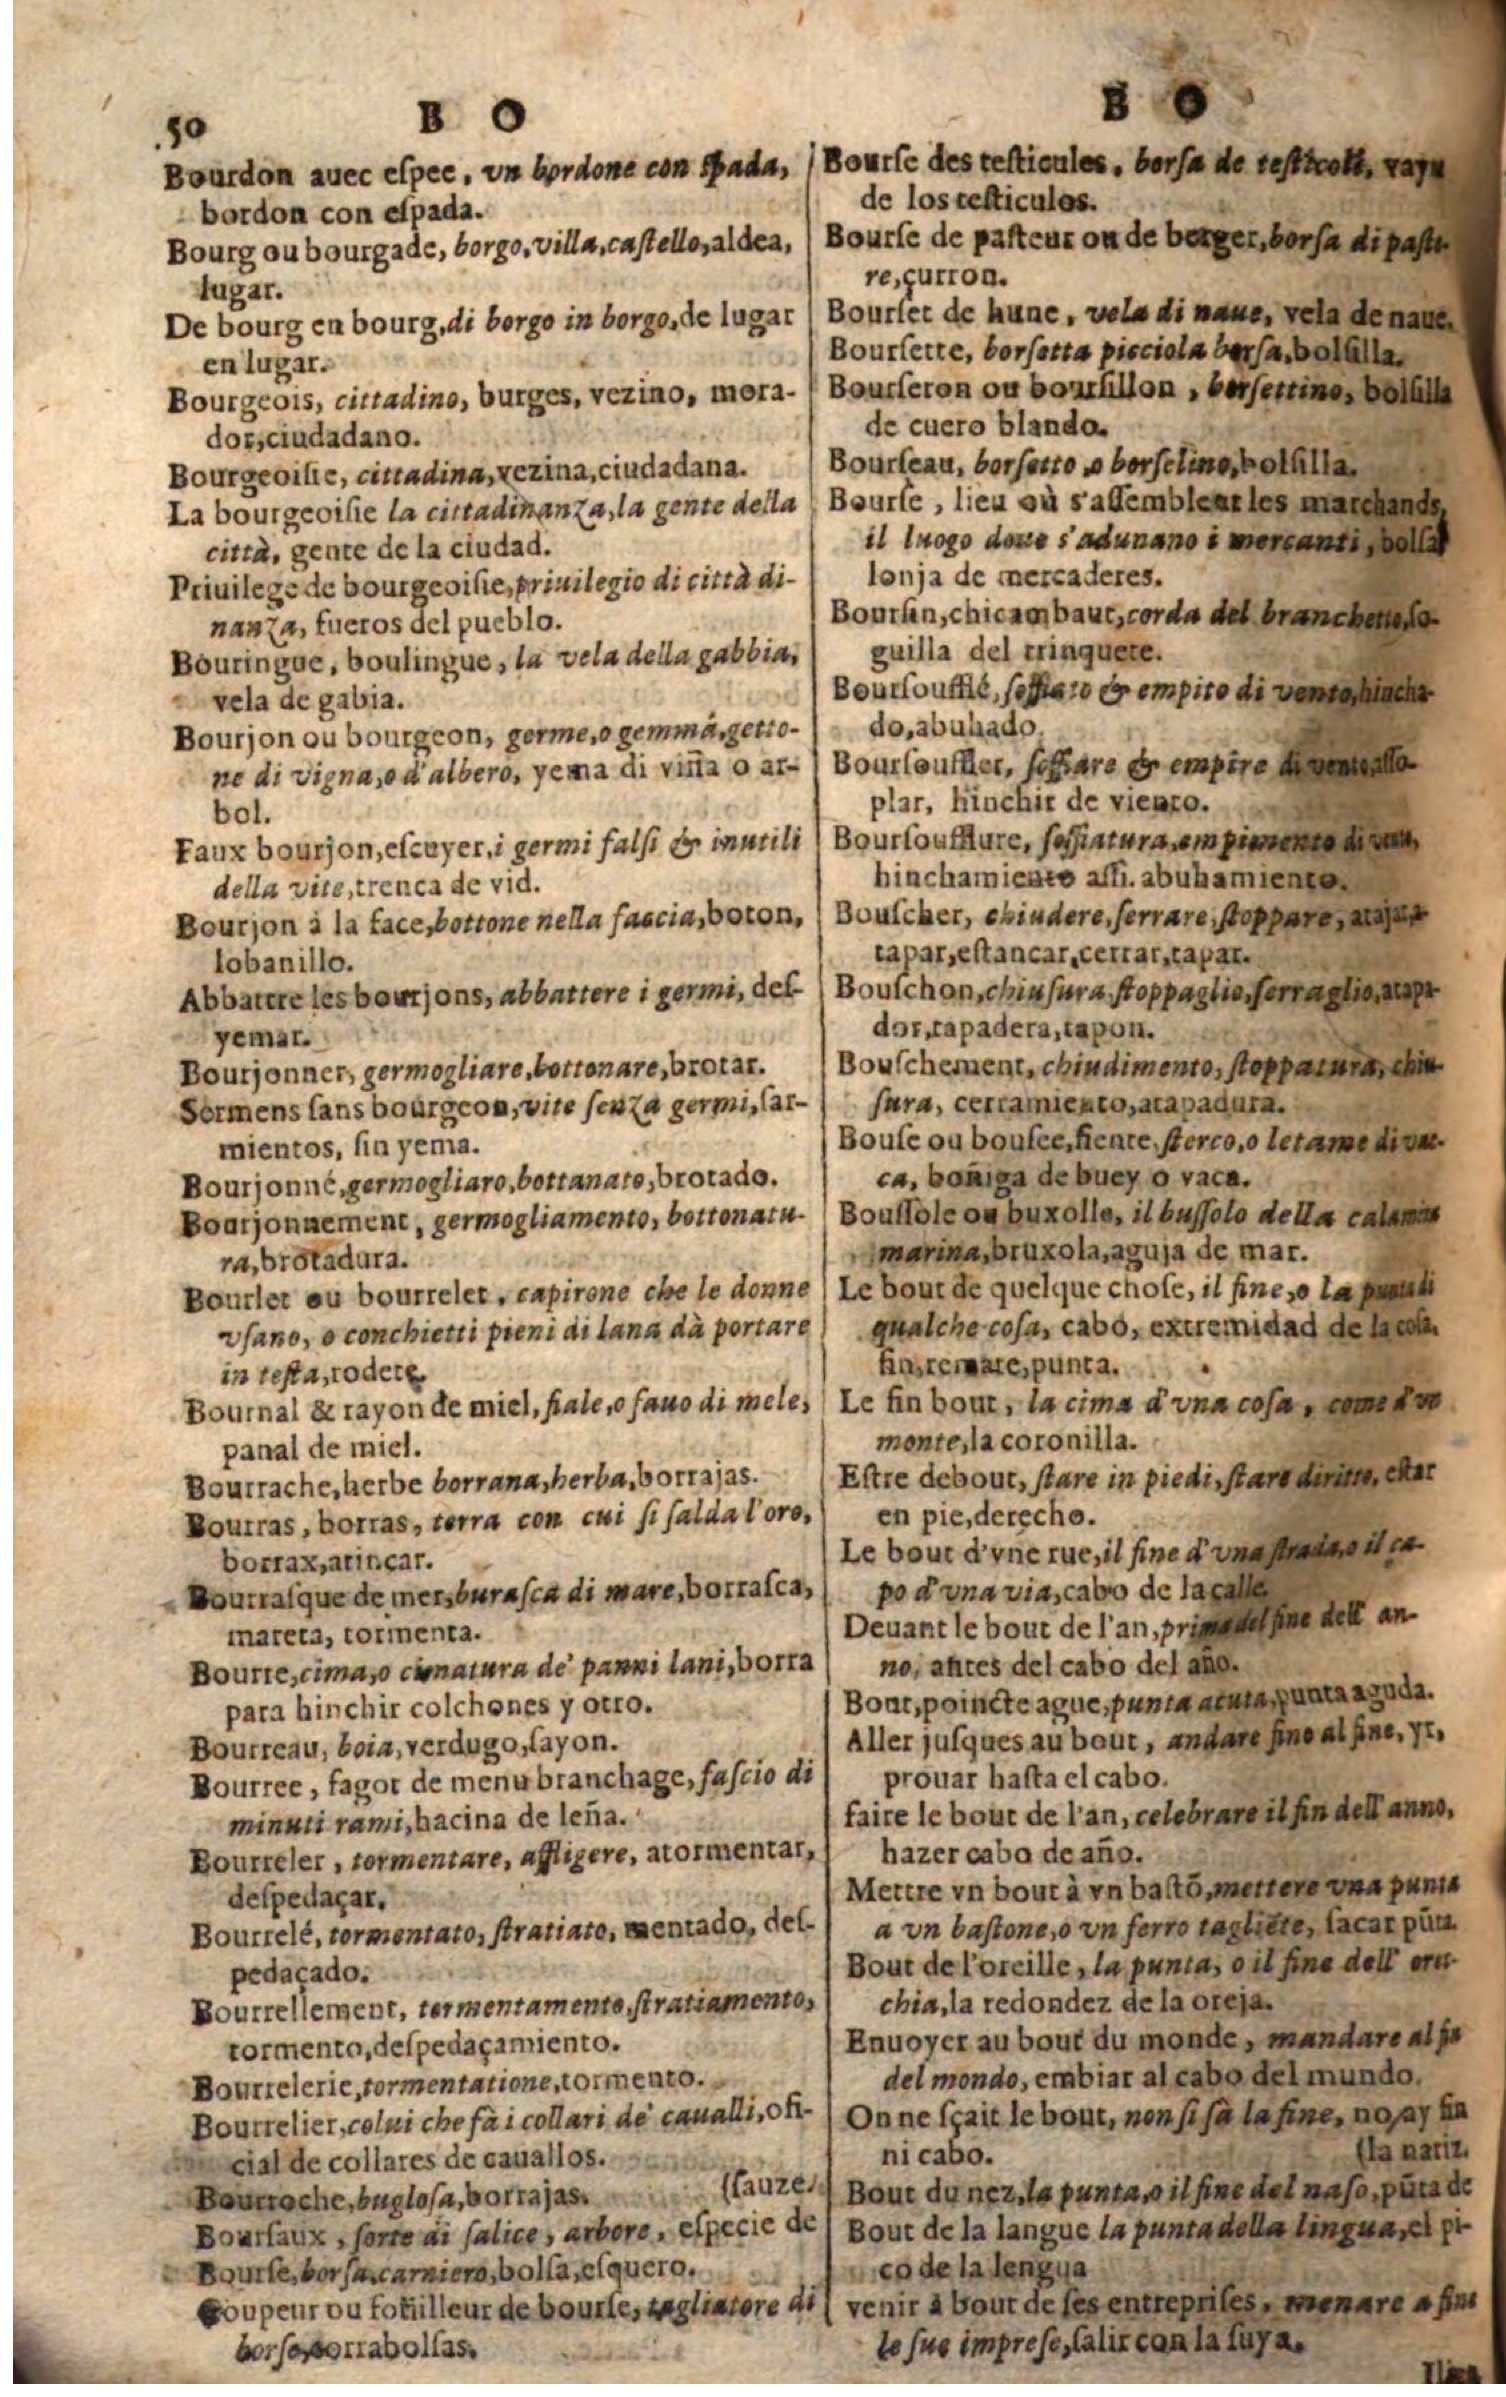 50
B O
Bourdon auec eſpee, vn bordone con ſpada,
bordon con eſpada.
Bourg ou bourgade, borgo, villa, caſtello, aldea,
lugar.
De bourg en bourg, di borgo in borgo, de lugar
en lugar.
Bourgeois, cittadino, burges, vezino, mora-
dor, ciudadano.
Bourgeoiſie, cittadina, vezina, ciudadana.
La bourgeoiſie la cittadinanza, la gente della
città, gente de la ciudad.
Priuilege de bourgeoiſie, priuilegio di città di-
nanza, fueros del pueblo.
Bouringue, boulingue, la vela della gabbia,
vela de gabia.
Bourjon ou bourgeon, germe, o gemma, getto-
ne di vigna, o d'albero, yema di viña o ar-
bol.
Faux bourjon, eſcuyer, i germi falſi & inutili
della vite, trenca de vid.
Bourjon à la face, bottone nella faccia, boton,
lobanillo.
Abbattre les bourjons, abbattere i germi, deſ-
yemar.
Bourjonner, germogliare, bottonare, brotar.
Sermens ſans bourgeon, vite ſenza germi, ſar-
mientos, ſin yema.
Bourjonné, germogliaro, bottanato, brotado.
Bourjonnement, germogliamento, bottonatu-
ra, brotadura.
Bourlet ou bourrelet, capirone che le donne
vſano, o conchietti pieni di lana dà portare
in teſta, rodete.
Bournal & rayon de miel, fiale, o fauo di mele,
panal de miel.
Bourrache, herbe borrana, herba, borrajas.
Bourras, borras, terra con cui ſi ſalda l'oro,
borrax, atincar.
Bourraſque de mer, buraſca di mare, borraſca,
mareta, tormenta.
Bourre, cima, o cimatura de' panni lani, borra
para hinchir colchones y otro.
Bourreau, boia, verdugo, ſayon.
Bourree, fagot de menu branchage, faſcio di
minuti rami, hacina de leña.
Bourreler, tormentare, affligere, atormentar,
deſpedaçar.
Bourrelé, tormentato, ſtratiato, mentado, deſ-
pedaçado.
Bourrellement, tormentamento, ſtratiamento,
tormento, deſpedaçamiento.
Bourrelerie, tormentatione, tormento.
Bourrelier, colui che fà i collari de' caualli, ofi-
cial de collares de cauallos.
Bourroche, bugloſa, borrajas. (ſauze.
Bourſaux, ſorte di ſalice, arbore, eſpecie de
Bourſe, borſa, carniero, bolſa, eſquero.
Coupeur ou foüilleur de bourſe, tagliatore di
borſe, corrabolſas.
B O
Bourſe des teſticules, borſa de teſticoli,
de los teſticulos.
Bourſe de paſteur ou de berger, borſa di paſto-
re, çurron.
Bourſet de hune, vela di naue, vela de naue.
Bourſette, borſetta picciola borſa, bolſilla.
Bourſeron ou bourſillon, borſettino, bolſilla
de cuero blando.
Bourſeau, borſetto o borſelino, bolſilla.
Bourſe, lieu où s'aſſemblent les marchands,
il luogo doue s'adunano i mercanti, bolſa
lonja de mercaderes.
Bourſin, chicambaut, corda del branchetto, ſo-
guilla del trinquete.
Bourſoufflé, ſoffiato & empito di vento, hincha-
do, abuhado.
Bourſouffler, ſoffiare & empire di vento, aſſo-
plar, hinchir de viento.
Bourſoufflure, ſoffiatura, empimento di
hinchamiento aſſi. abuhamiento.
Bouſcher, chiudere, ſerrare, ſtoppare,
tapar, eſtancar, cerrar, tapar.
Bouſchon, chiuſura, ſtoppaglio, ſerraglio, atapa-
dor, tapadera, tapon.
Bouſchement, chiudimento, ſtoppatura, chiu-
ſura, cerramiento, atapadura.
Bouſe ou bouſee, fiente, ſterco, o letame di vac-
ca, boñiga de buey o vaca.
Bouſſole ou buxolle, il buſſolo della calamita
marina, bruxola, aguja de mar.
Le bout de quelque choſe, il fine, o la punta di
qualche coſa, cabo, extremidad de la coſa,
fin, remate, punta.
Le fin bout, la cima d'vna coſa, come d'vn
monte, la coronilla.
Eſtre debout, ſtare in piedi, ſtare diritto, eſtar
en pie, derecho.
Le bout d'vne rue, il fine d'vna ſtrada, o il ca-
po d'vna via, cabo de la calle.
Deuant le bout de l'an, prima del fine dell' an-
no, antes del cabo del año.
Bout, poincte ague, punta acuta, punta aguda.
Aller juſques au bout, andare fino al fine, yr,
prouar haſta el cabo.
faire le bout de l'an, celebrare il fin dell' anno,
hazer cabo de año.
Mettre vn bout à vn baſtõ, mettere vna punta
a vn baſtone, o vn ferro tagliẽte, ſacar pũta.
Bout de l'oreille, la punta, o il fine dell' orec-
chia, la redondez de la oreja.
Enuoyer au bout du monde, mandare al fin
del mondo, embiar al cabo del mundo.
On ne ſçait le bout, non ſi ſà la fine, no ay fin
ni cabo. (la nariz.
Bout du nez, la punta, o il fine del naſo, pũta de
Bout de la langue la punta della lingua, el pi-
co de la lengua
venir à bout de ſes entrepriſes, menare a fine
le ſue impreſe, ſalir con la ſuya.